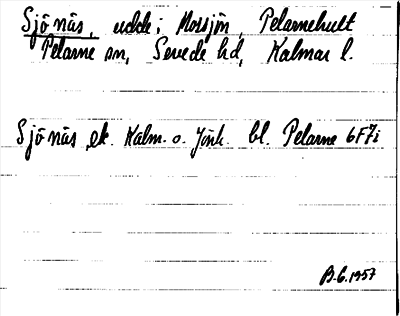 Sjönäs, udde i Morsjön, Pelarnehult
Pelarne sn, Sevede hd, Kalmar l.
Sjönäs, ek. Kalm. o. Jönk. bl. Pelarne 6F7i
B.G. 1957